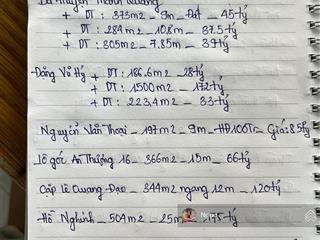 + DT : 373m2 _ 9m _ Đất _ 45 tỷ
+ DT : 284m2 _ 10,8m _ 37.5 tỷ
+ DT : 305m2 _ 7.85m _ 39 tỷ
Đồng Võ Kỷ + DT : 186.6m2 _ 28 tỷ
+ DT : 1500m2 _ 172 tỷ
+ DT : 223,4m2 _ 33 tỷ
Nguyễn Văn Thoại _ 197m2 _ 9m _ HĐ100Tr _ Giá: 85 tỷ
Lô góc An Thượng 16 _ 366m2 _ 15m _ 66 tỷ
Cặp Lê Quang Đạo _ 344m2 ngang 12m _ 120 tỷ
Hồ Nghinh _ 504m2 _ 25m 175 tỷ